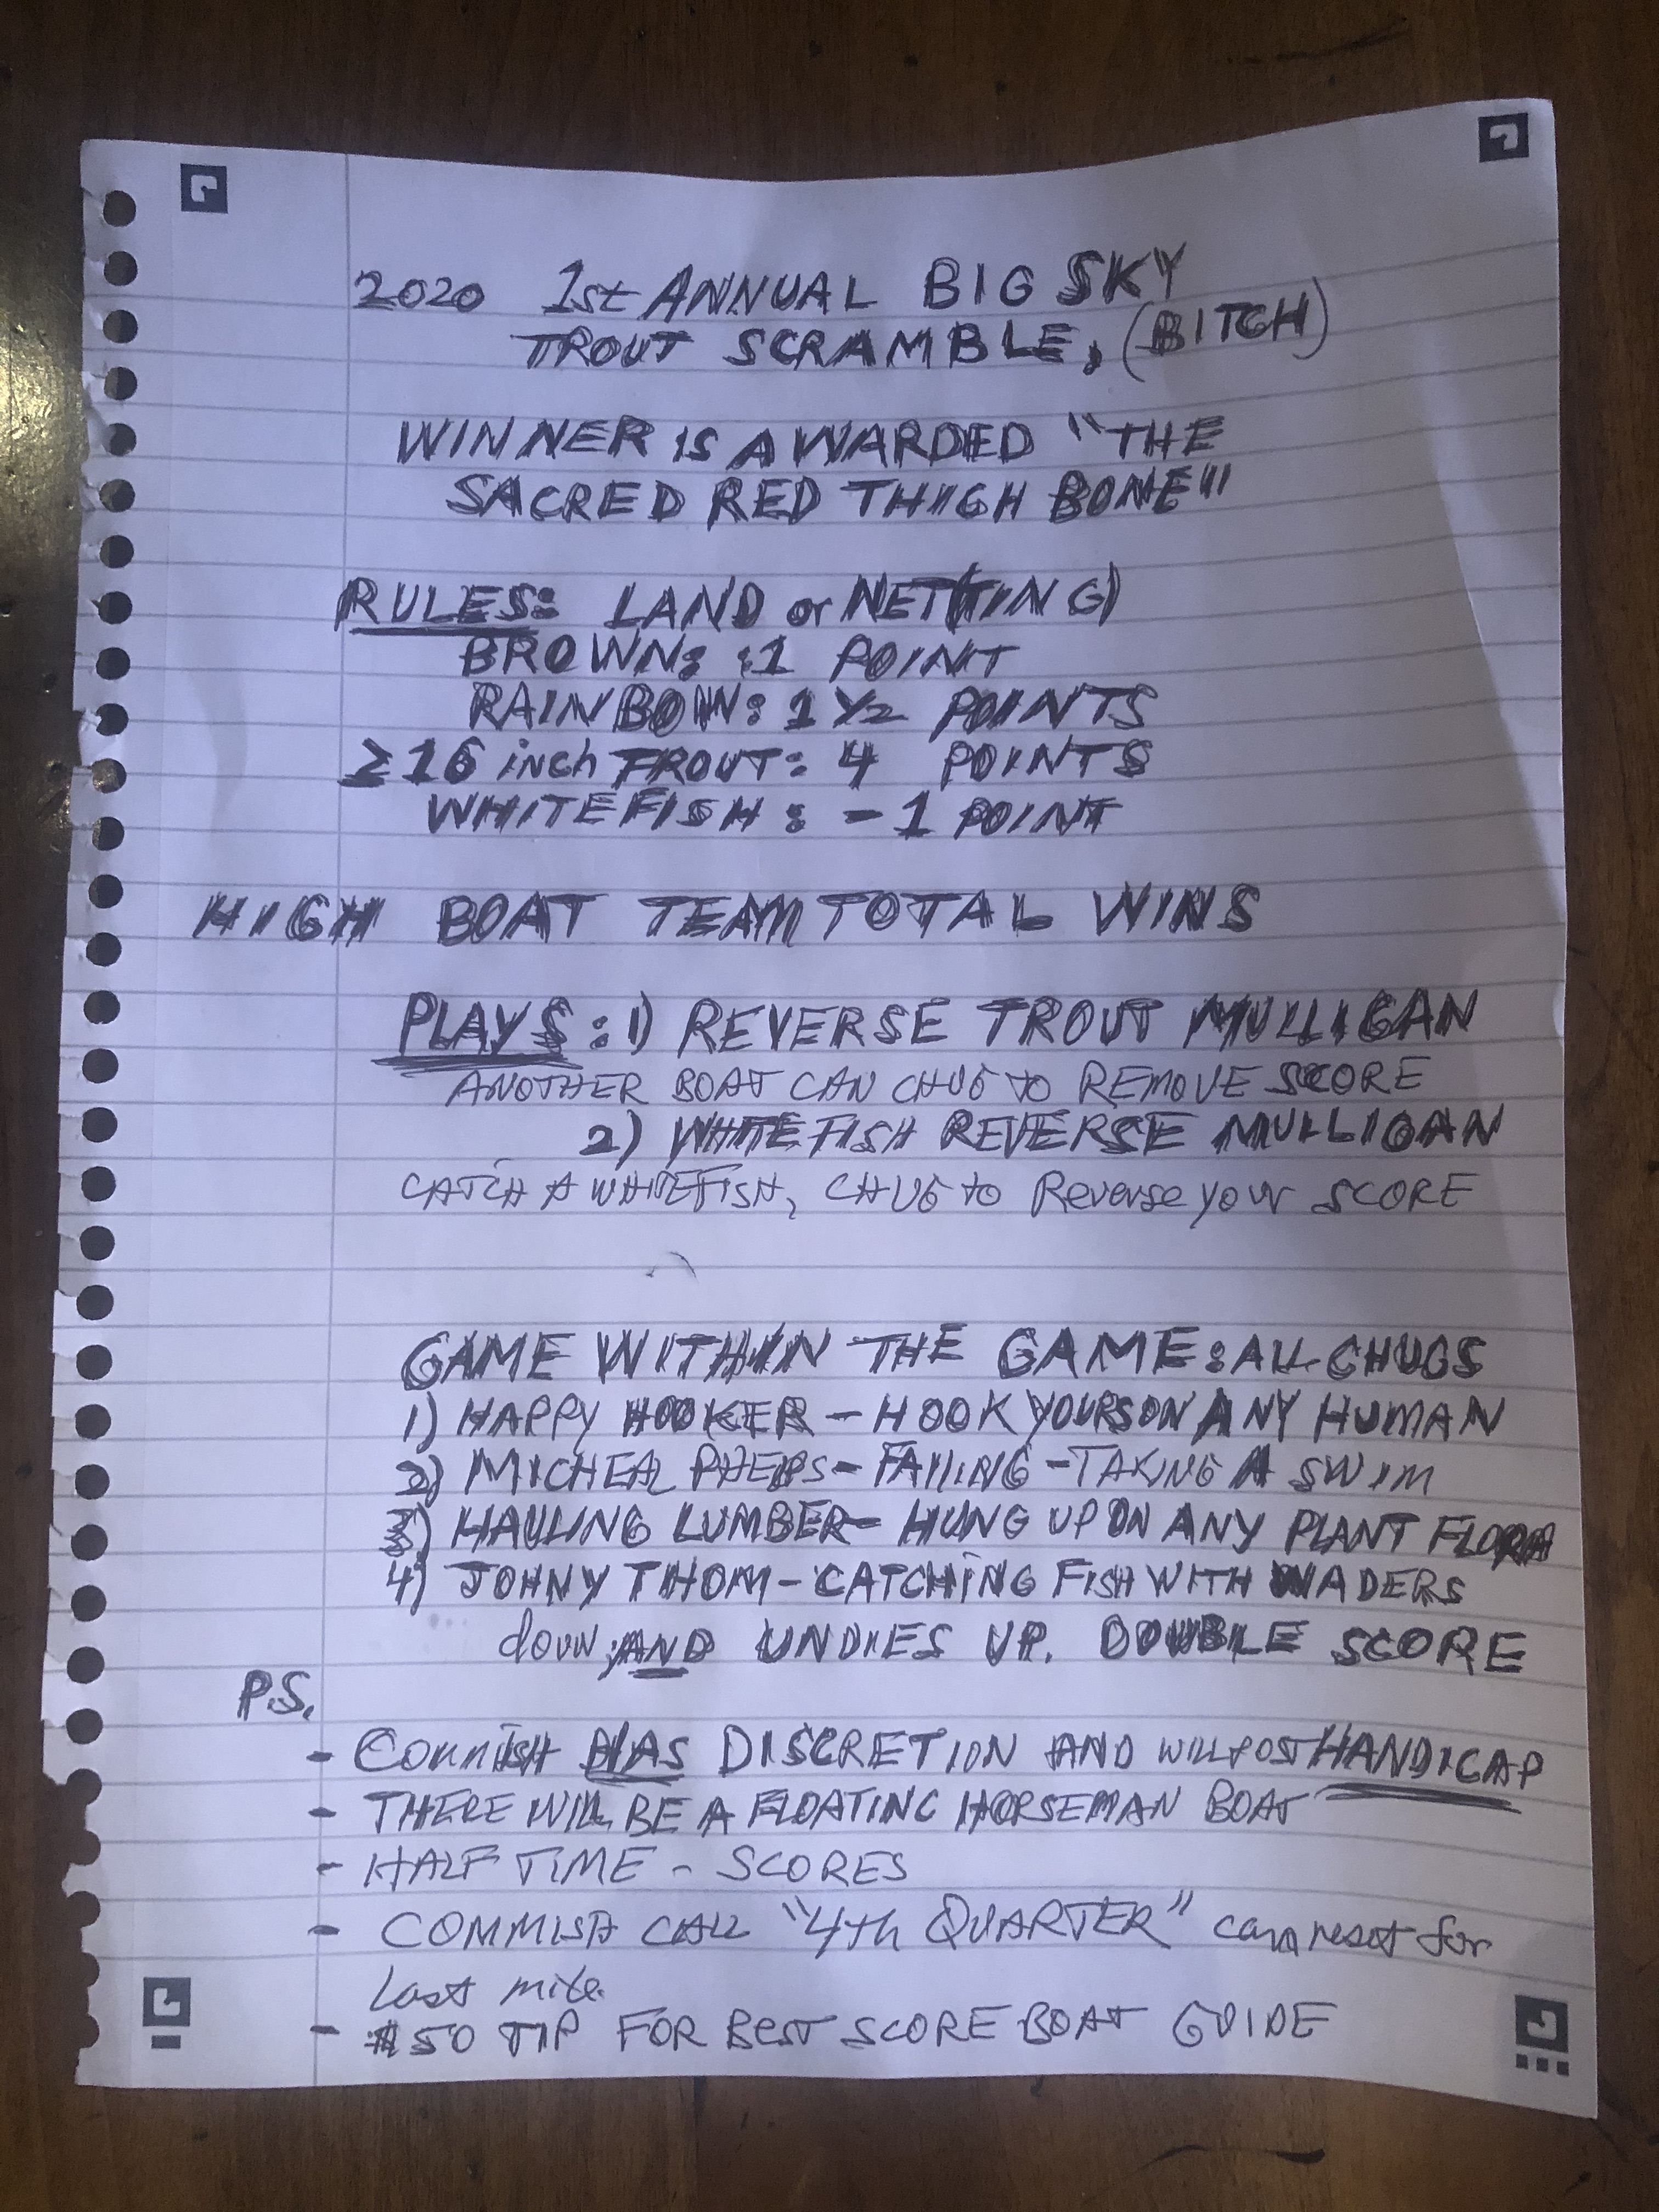 2020 1st ANNUAL BIG SKY
TROUT SCRAMBLE, (BITCH)
WINNER IS AWARDED "THE
SACRED RED THIGH BONE"
RULES: LAND or NET(TING)
BROWN: :1 POINT
RAINBOW: 1 1/2 POINTS
≥16 inch TROUT: 4 POINTS
WHITEFISH: -1 POINT
HIGH BOAT TEAM TOTAL WINS
PLAYS: 1) REVERSE TROUT MULLIGAN
ANOTHER BOAT CAN CHUG TO REMOVE SCORE
2) WHITEFISH REVERSE MULLIGAN
CATCH A WHITEFISH, CHUG to Reverse your SCORE
GAME WITHIN THE GAME: ALL CHUGS
1) HAPPY HOOKER - HOOK YOURS ON ANY HUMAN
2) MICHEAL PHELPS - FALLING - TAKING A SWIM
3) HAULING LUMBER - HUNG UP ON ANY PLANT FLORA
4) JOHNY THOM - CATCHING FISH WITH WADERS
down, AND UNDIES UP. DOUBLE SCORE
P.S.
- COMMISH HAS DISCRETION AND WILL POST HANDICAP
- THERE WILL BE A FLOATING HORSEMAN BOAT
- HALF TIME - SCORES
- COMMISH CALL "4th QUARTER" can reset for
Last mile.
- $50 TIP FOR BEST SCORE BOAT GUIDE